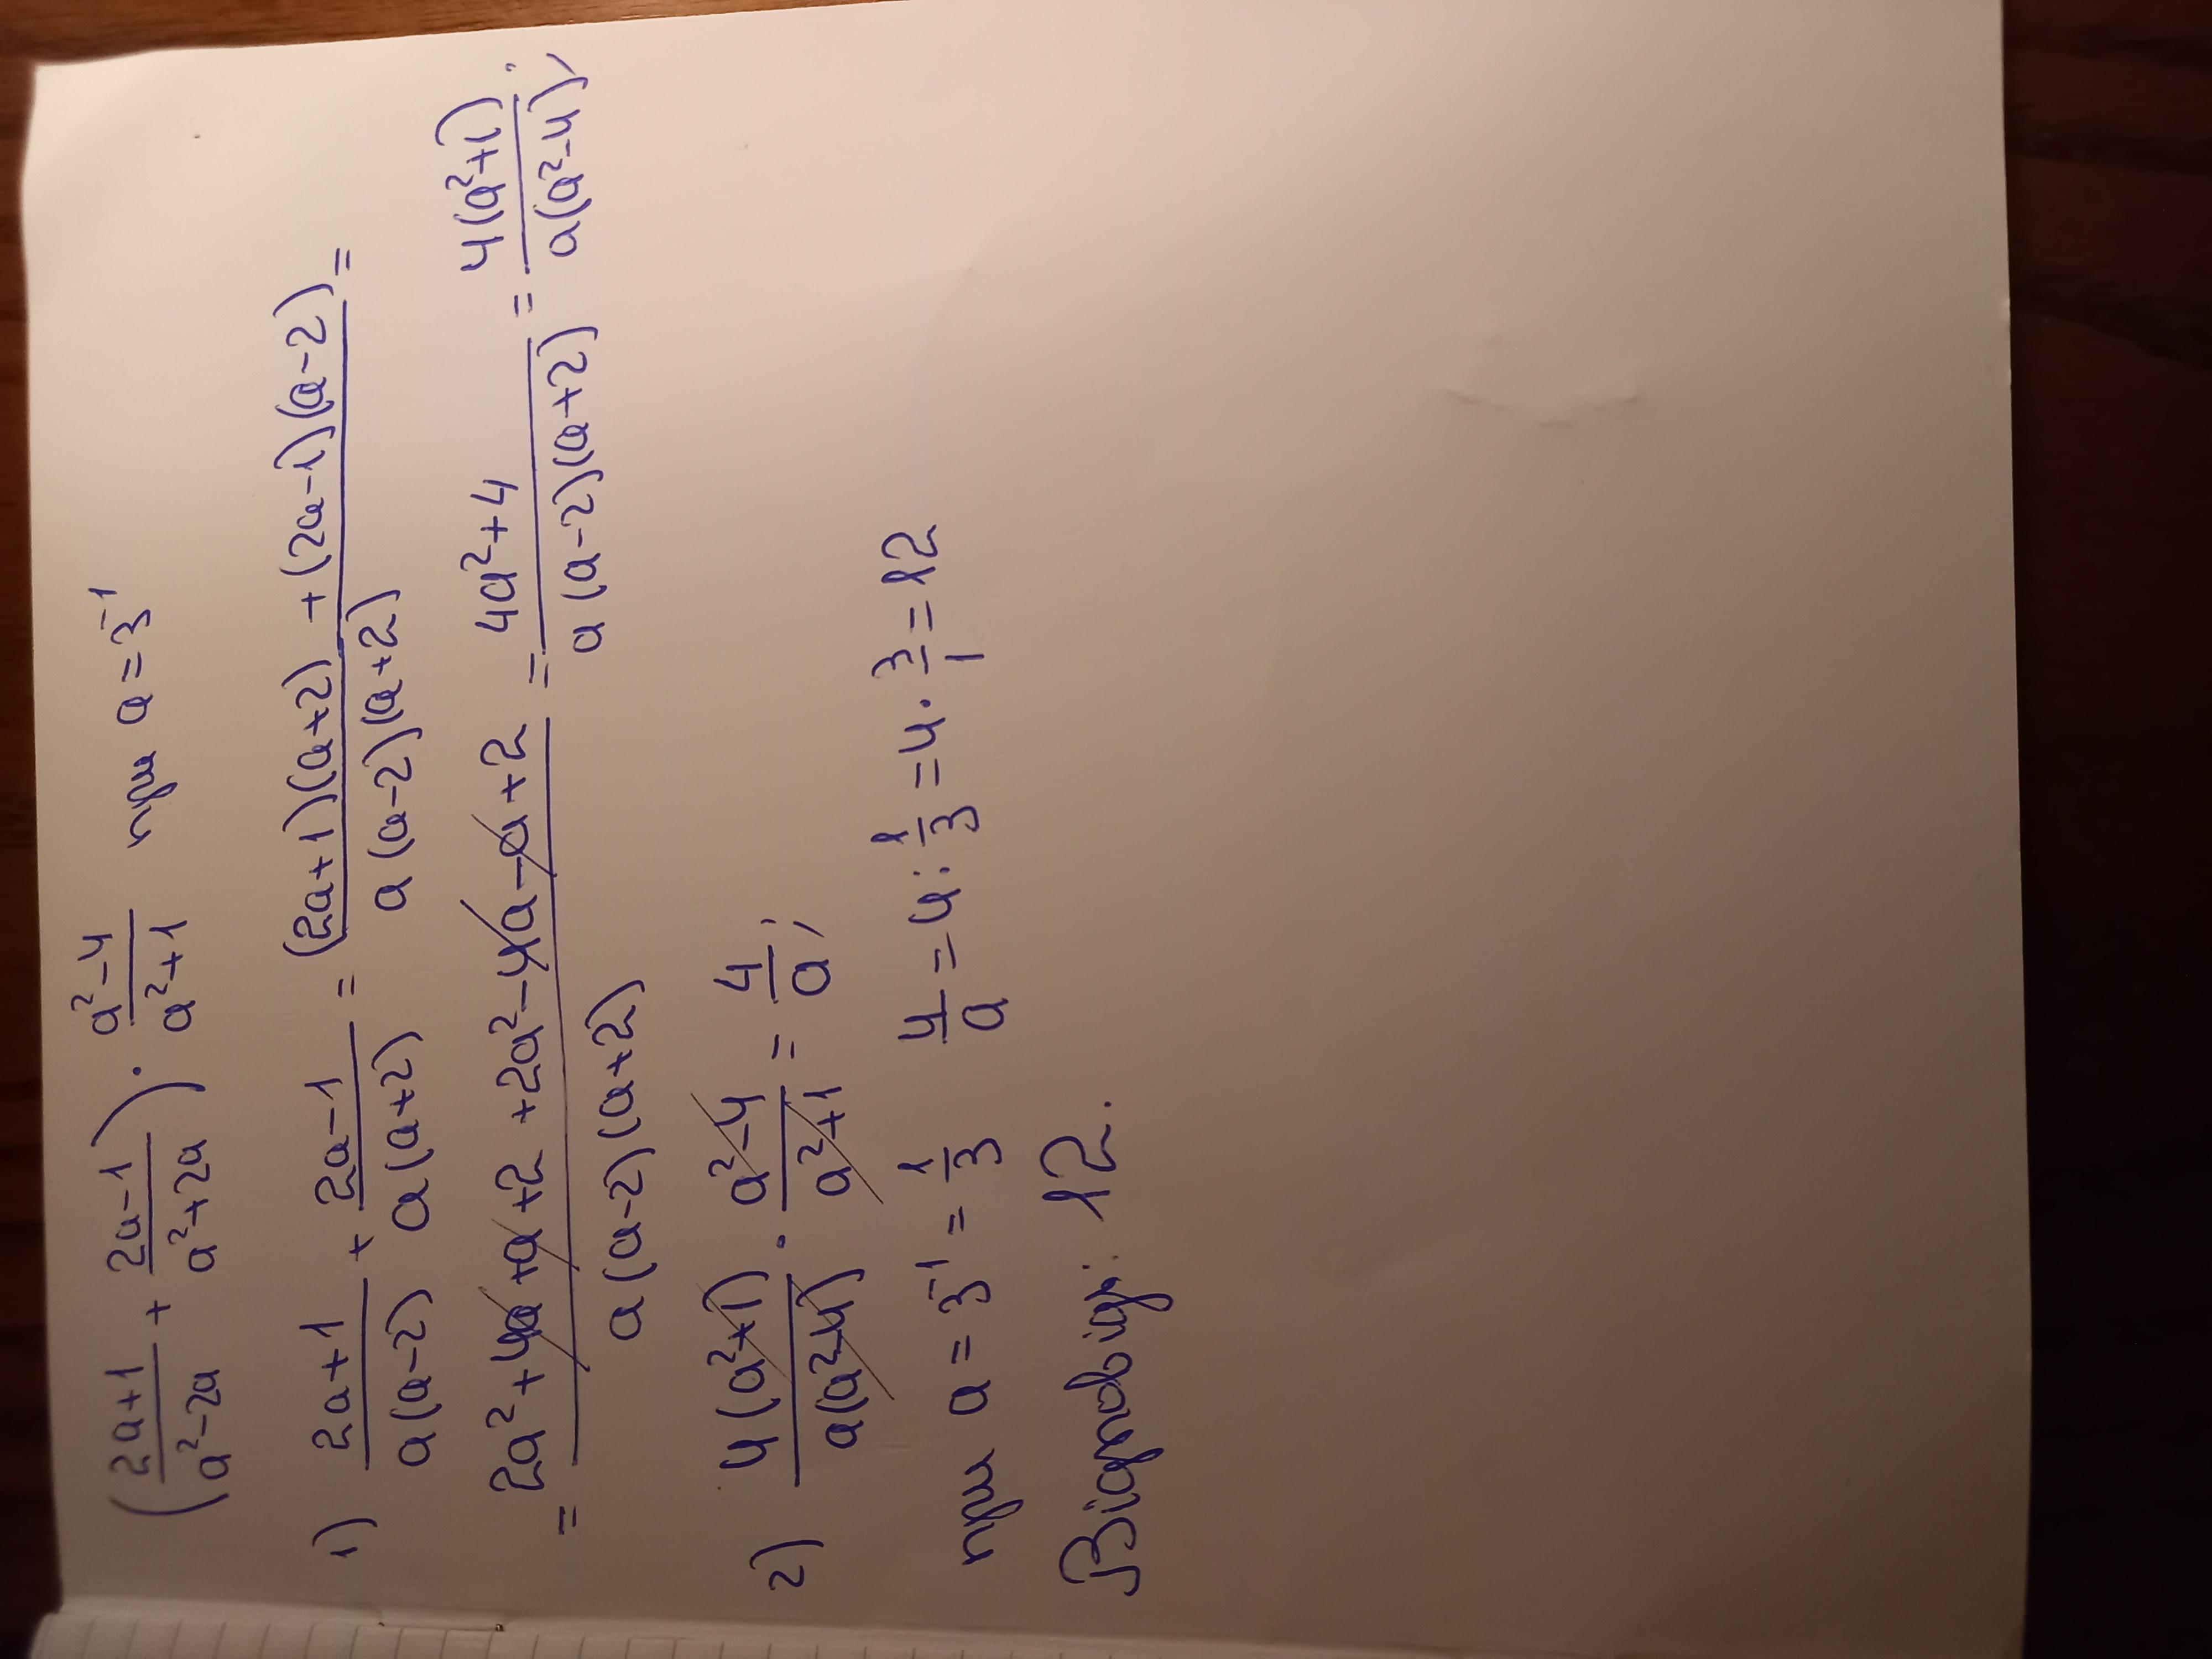 (2a+1/a²-2a + 2a-1/a²+2a) · a²-4/a²+1 при a=3⁻¹
1) 2a+1/a(a-2) + 2a-1/a(a+2) = (2a+1)(a+2)+(2a-1)(a-2)/a(a-2)(a+2) =
= 2a²+4a+a+2+2a²-4a-a+2/a(a-2)(a+2) = 4a²+4/a(a-2)(a+2) = 4(a²+1)/a(a²-4);
2) 4(a²+1)/a(a²-4) · a²-4/a²+1 = 4/a;
при a=3⁻¹=1/3 4/a=4:1/3=4·3/1=12
Відповідь: 12.